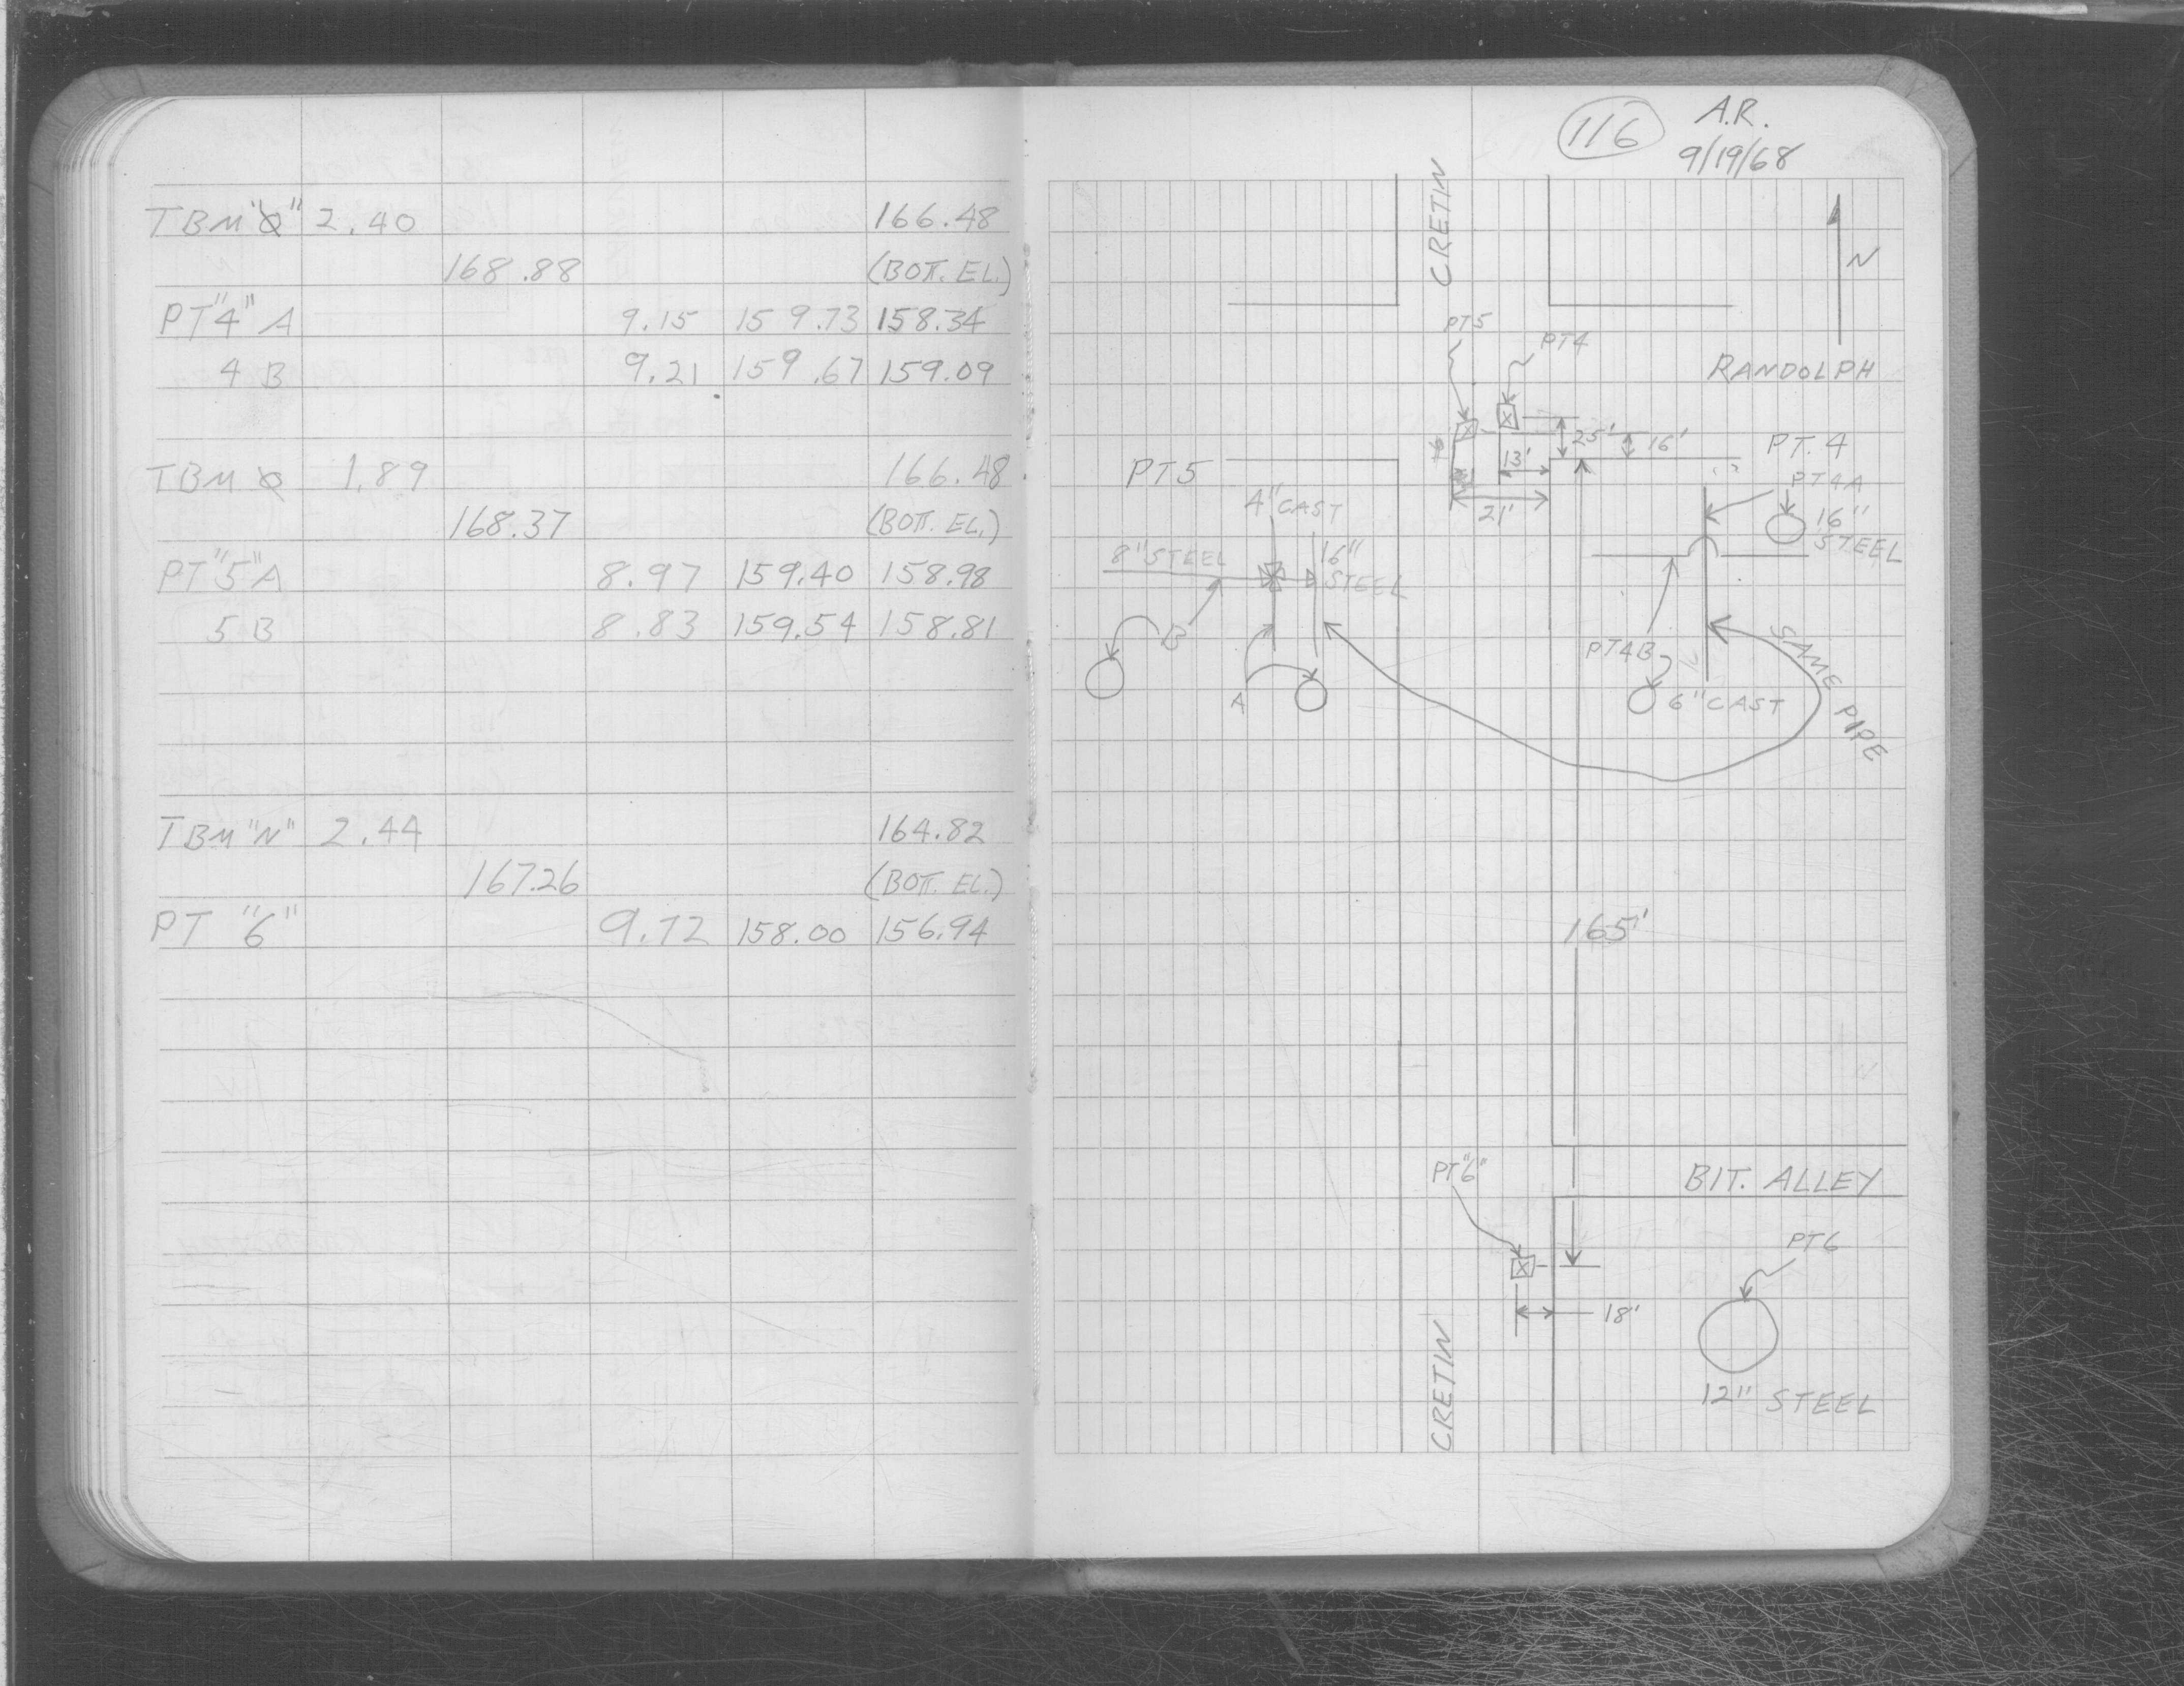 TBM "Q" 2.40 166.48
168.88 (BOTT. EL.)
PT "4" A 9.15 159.73 158.34
4 B 9.21 159.67 159.09
TBM Q 1.89 166.48
168.37 (BOTT. EL.)
PT "5" A 8.97 159.40 158.98
5 B 8.83 159.54 158.81
TBM "N" 2.44 164.82
167.26 (BOTT. EL.)
PT "6" 9.72 158.00 156.94
116
A.R.
9/19/68
CRETIN
N
PT5
PT4
RANDOLPH
25'
16'
13'
21'
PT5
4" CAST
8" STEEL
16"
STEEL
B
A
PT. 4
PT4A
16"
STEEL
PT4B
6" CAST
SAME PIPE
165'
PT "6"
BIT. ALLEY
PT6
18'
CRETIN
12" STEEL